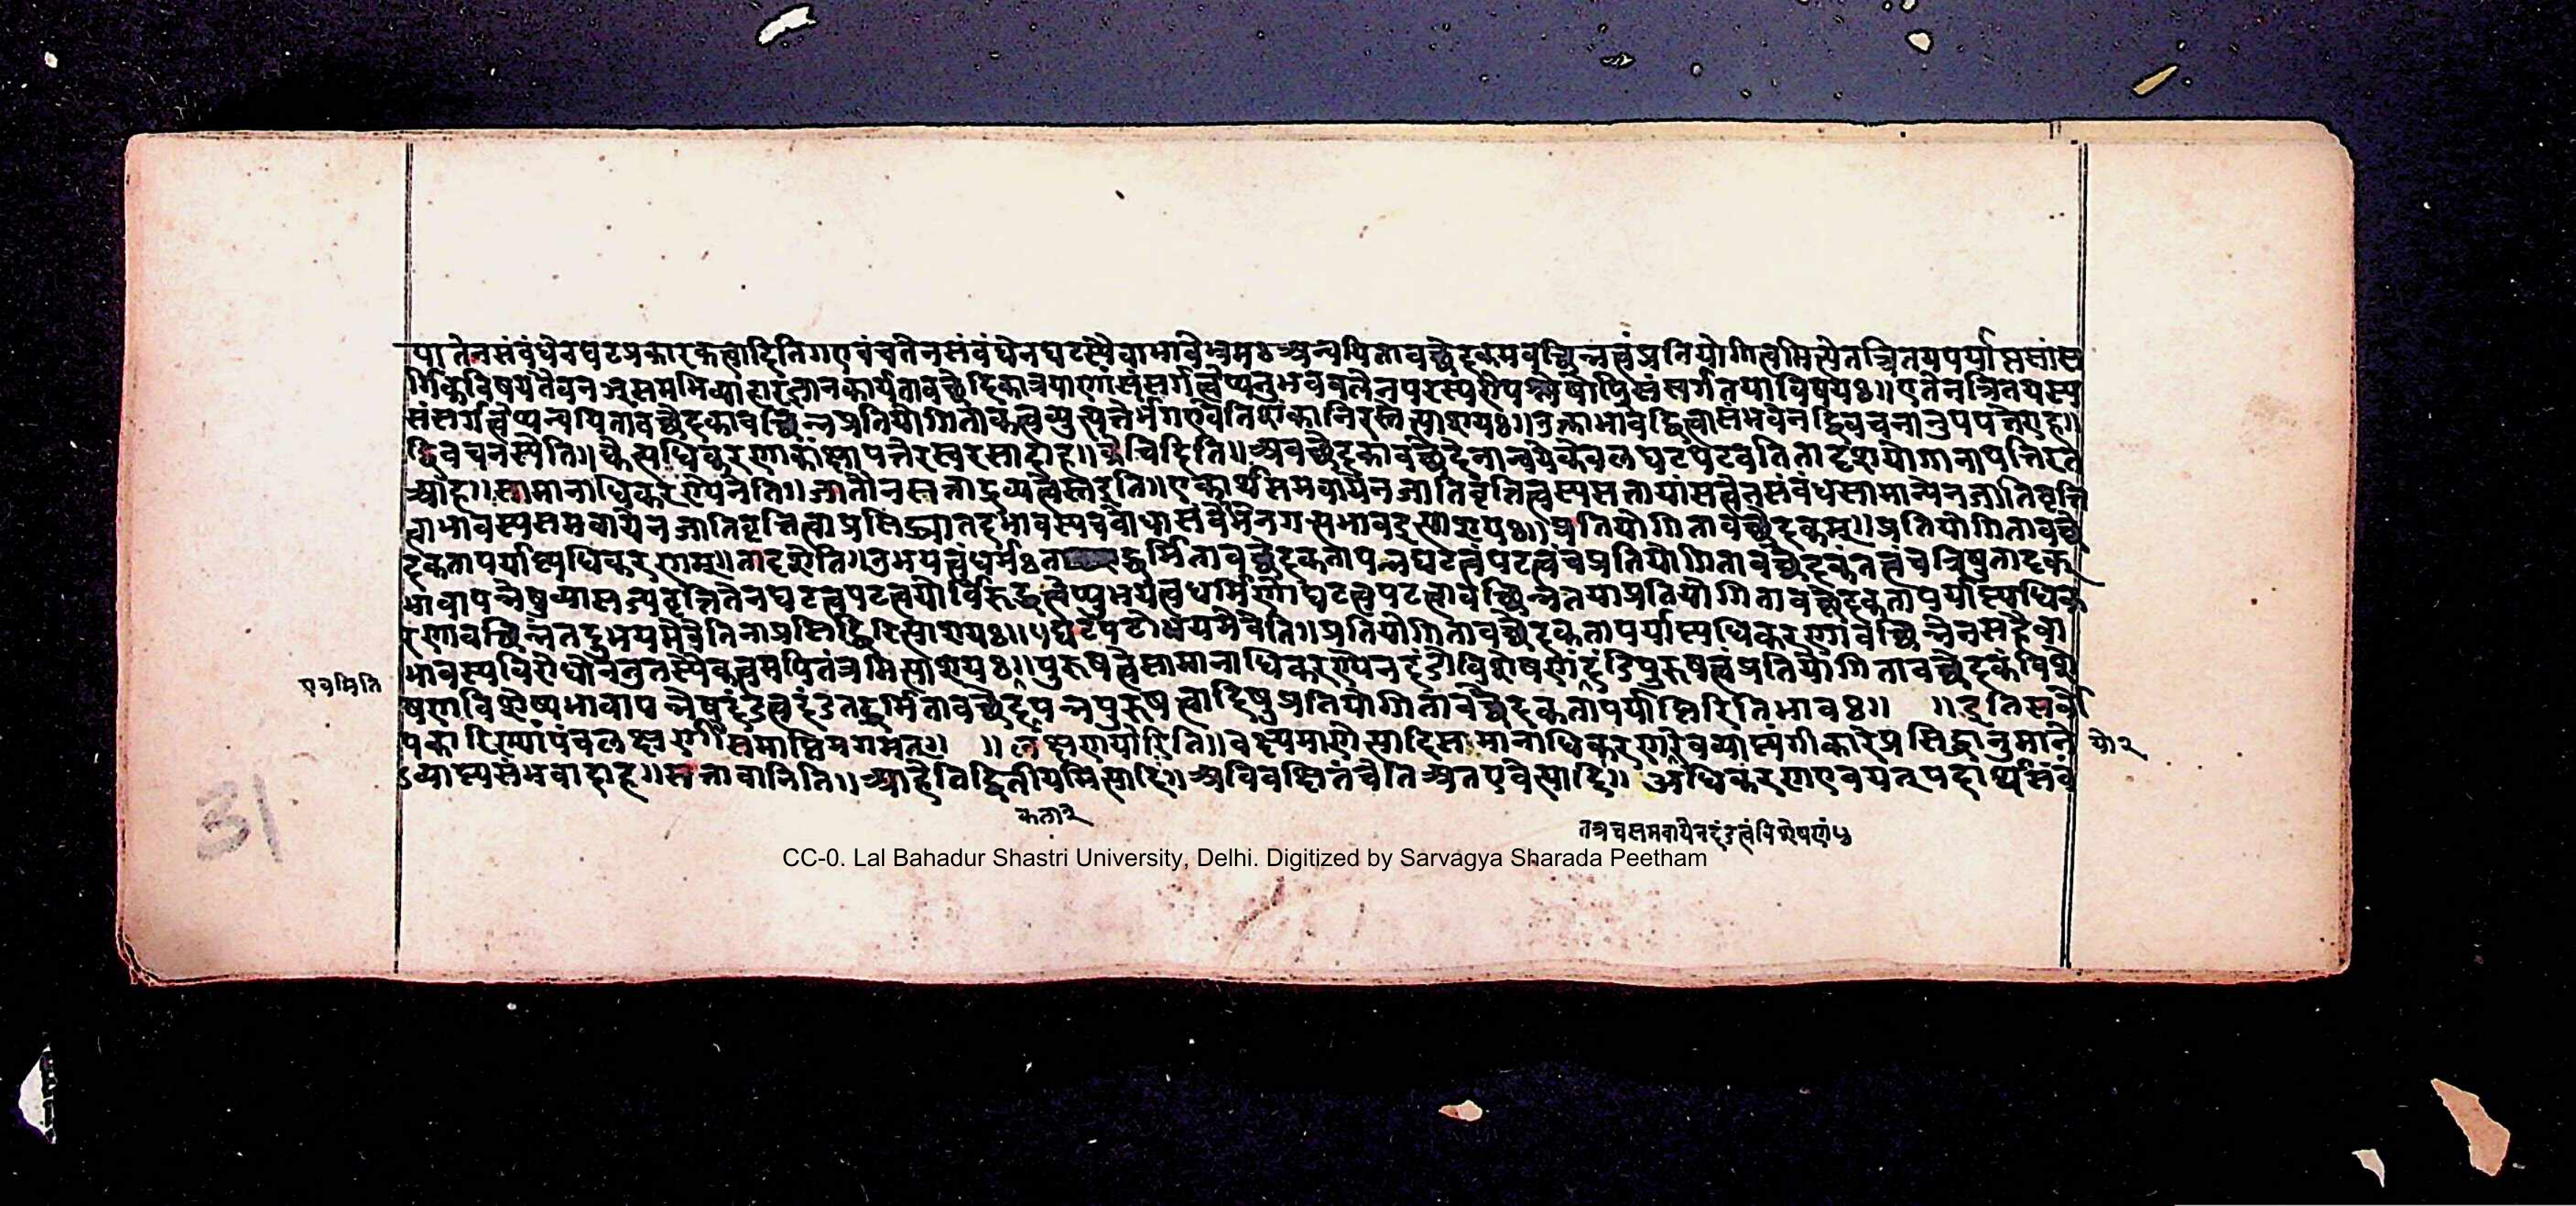 पा तेन संबंधेन घटप्रकारकत्वादिति ग एवं च तेन संबंधेन घटस्यैवाभावे भ्रमः अन्वयितावच्छेदकमवच्छिन्नत्वं प्रतियोगित्वमित्येतत्त्रितयपर्याप्तसांस
र्गिकविषयतैव नञ्समभिव्याहारज्ञानकार्यतावच्छेदिका त्रयाणां संसर्गत्वेप्यनुभवबलेन परस्परोपश्लेषोपि संसर्गतया विषयः॥ एतेन त्रितयस्य
संसर्गत्वेप्यन्वयितावच्छेदकावच्छिन्नप्रतियोगिताकत्वव्युत्पत्तेर्भंग एवेति शंका निरस्तेत्याशयः॥ उक्ताभावद्वित्वासंभवेन द्विवचनानुपपत्तेराह॥
द्विवचनस्येति॥ कैत्यधिकरणाकांक्षापत्तेरस्वरसादाह॥ केचिदिति॥ अवच्छेदकावच्छेदेनान्वये केवलघटपटवति तादृशयोगानापत्तिरत
आह॥ सामानाधिकरण्येनेति॥ जातौ न सत्ता द्रव्यत्वेस्त इति॥ एकार्थसमवायेन जातिवृत्तित्वस्य सत्तायां सत्वेन संबंधसामान्येन जातिवृत्ति
त्वाभावस्य समवायेन जातिवृत्तित्वाप्रसिद्ध्या तदभावस्य च बोधासंभवेन ग सभाव इत्याशयः॥ प्रतियोगितावच्छेदकम्॥ प्रतियोगितावच्छे
दकतापर्याप्त्यधिकरणम्॥ तादृशेति॥ उभयत्वं धर्मः त द्धर्मितावच्छेदकतापन्नघटत्वं पटत्वं च प्रतियोगितावच्छेदकं तत्वं च त्रिषु तादृक
भावापन्नेषु व्यासज्यवृत्ति तेन घटत्वपटत्वयोर्विरुद्धत्वेप्युभयत्वधर्मिणो घटत्वपटत्वावच्छिन्नतया प्रतियोगितावच्छेदकतापर्याप्त्यधिक
रणावच्छिन्नं तदुभयमेवेति नाप्रसिद्धिरित्याशयः॥ घटपटोभयमेवेति॥ प्रतियोगितावच्छेदकतापर्याप्त्यधिकरणावच्छिन्नेन सहैवा
भावस्य विरोधो न तु तस्यैकत्वमपि तंत्रमित्याशयः॥ पुरुषत्वे सामानाधिकरण्येन दंडो विशेषणं दंडिपुरुषत्वं प्रतियोगितावच्छेदकं विशे
षणविशेष्यभावापन्नेषु दंडत्वदंडतद्धर्मितावच्छेदपन्नपुरुषत्वादिषु प्रतियोगितावच्छेदकतापर्याप्तिरिति भावः॥ ॥ इति सर्वो
पकारिण्यां पंचलक्षणी समाप्तिमगमत्॥ ॥ लक्षणयोरिति॥ वक्ष्यमाणेत्यादि सामानाधिकरणैवव्याप्त्यंगीकारे प्रसिद्धानुमाने
ऽव्याप्त्यसंभवादाह॥ सत्तावानिति॥ आहेति द्वितीयमित्यादि॥ अविवक्षितं चेति अत एवेत्यादि॥ अधिकरण एव यत् पदार्थसंबं
एवमिति
यो२
कता२
तत्र च समवायेन दंडत्वं विशेषणं
31
CC-0. Lal Bahadur Shastri University, Delhi. Digitized by Sarvagya Sharada Peetham